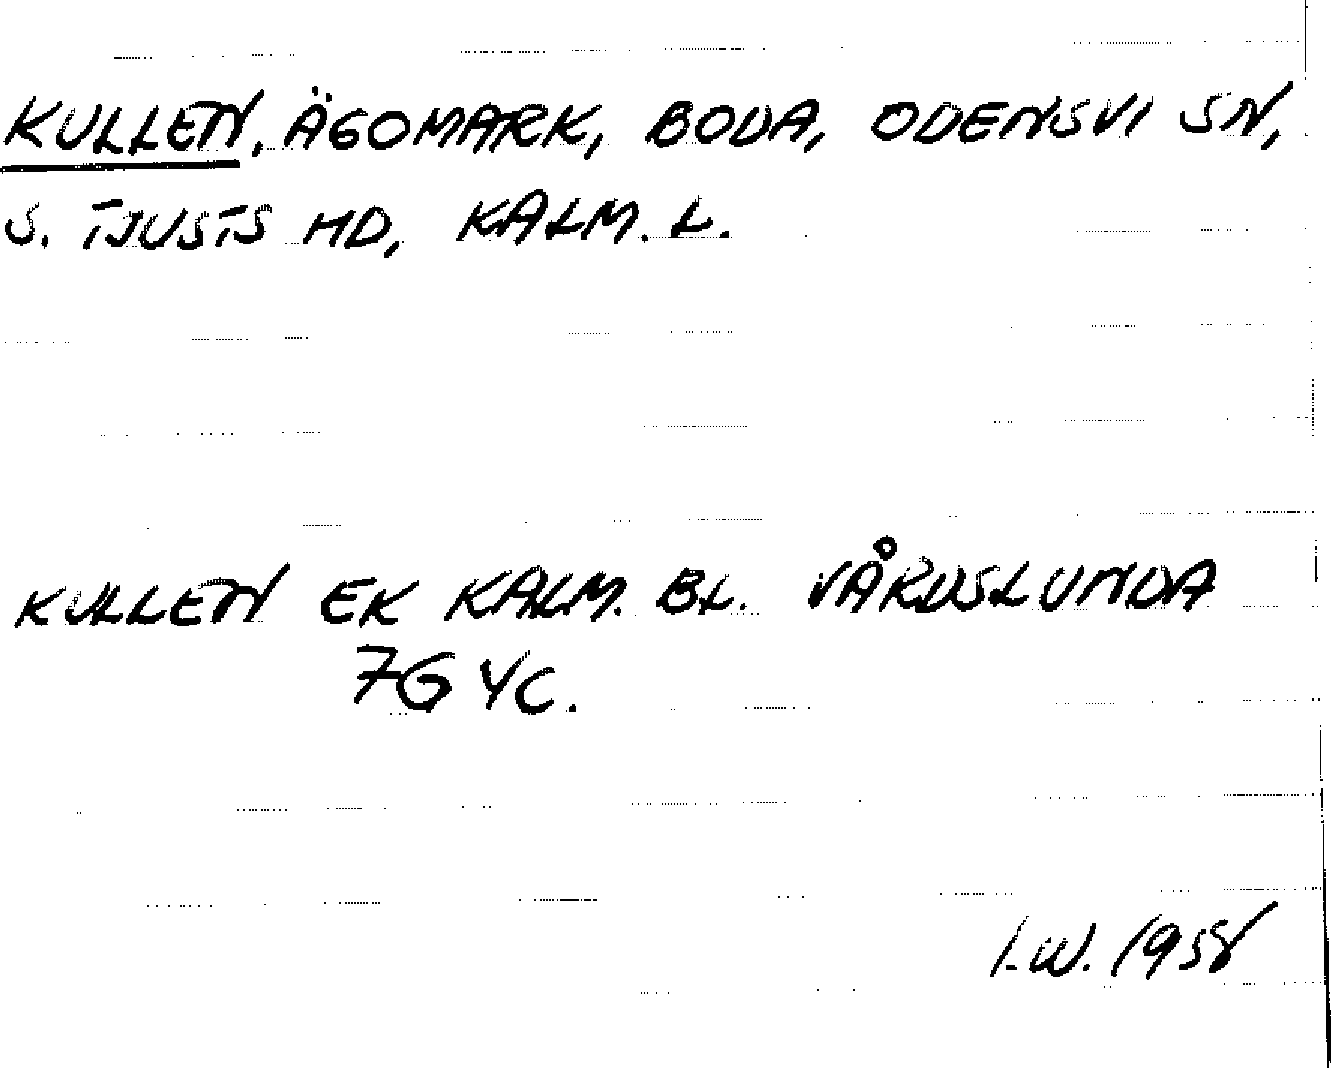 KULLEN, ÄGOMARK, BODA, ODENSVI SN,
S. TJUSTS HD, KALM. L.
KULLEN EK KALM. BL. VÅRDSLUNDA
7G 4C.
I.W. 1958